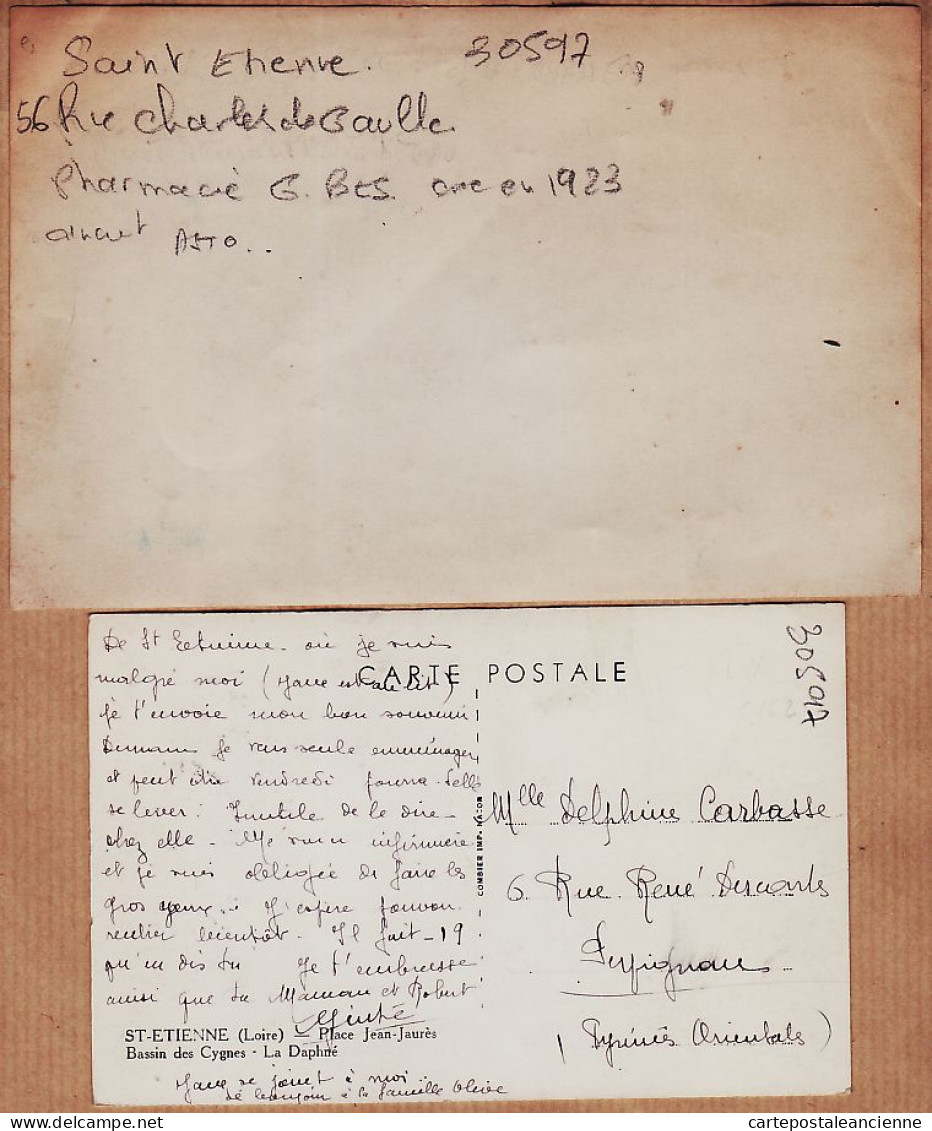 Saint Etienne. 30597
56 Rue Charles de Gaulle
Pharmacie G. BES. en 1923
ASTO..
305917
CARTE POSTALE
De St Etienne où je suis
malgré moi (
je t'envoie mon bon souvenir
Demain je vais seule emménager
et peut être vendredi pourra-t-elle
se lever. Inutile de le dire
chez elle. Me voici infirmière
et je suis obligée de faire les
gros yeux.. J'espère pouvoir
rentrer bientôt. Il fait -19
qu'en dis tu Je t'embrasse
ainsi que ta Maman et Robert
COMBIER IMP. MACON
Mlle Delphine Carbasse
6. Rue René Descartes
Perpignan
(Pyrénées Orientales)
ST-ETIENNE (Loire) — Place Jean-Jaurès
Bassin des Cygnes - La Daphné
se joint à moi..
à la famille
delcampe.net
cartepostaleancienne